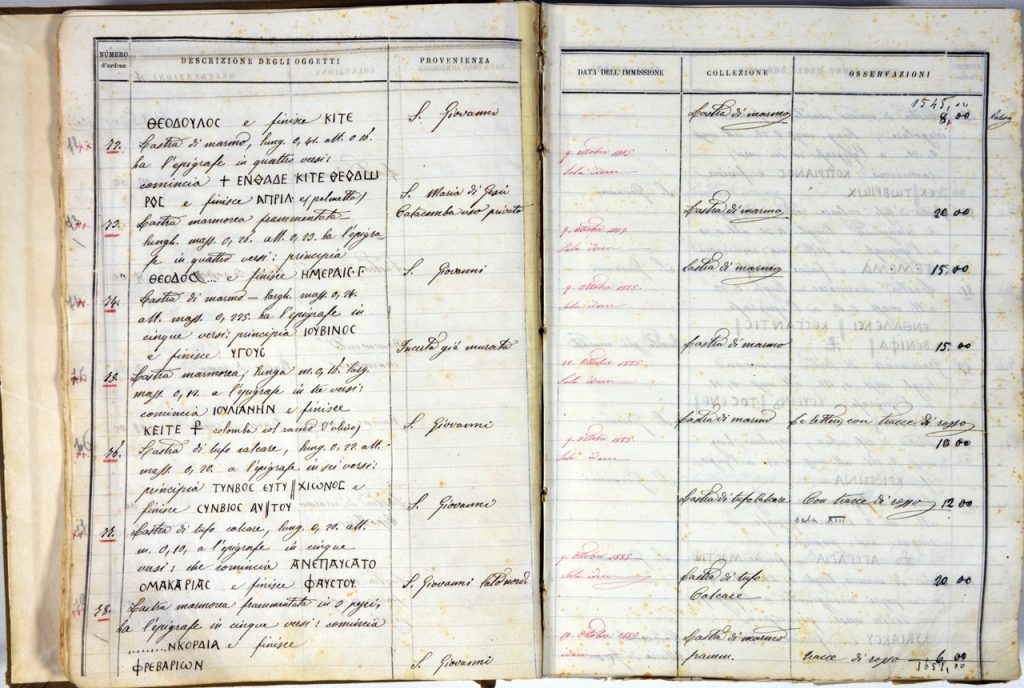 NÚMERO
d'ordine
DESCRIZIONE DEGLI OGGETTI
PROVENIENZA
ΘΕΟΔΟΥΛΟC e finisce ΚΙΤΕ
S. Giovanni
72. Lastra di marmo, lung. 0,41. alt. 0,16.
ha l'epigrafe in quattro versi:
comincia + ΕΝΘΑΔΕ ΚΙΤΕ ΘΕΟΔΩ
ΡΟC e finisce ΑΠΡΙΛ (palmetta)
S. Maria di Gesù
Catacomba uso privato
73. Lastra marmorea frammentata
lungh. mass. 0,26. alt. 0,23. ha l'epigra-
fe in quattro versi: principia
ΘΕΟΔΟC... e finisce ΗΜΕΡΑΙC·Γ
S. Giovanni
74. Lastra di marmo — largh. mass. 0,26.
alt. mass. 0,225. ha l'epigrafe in
cinque versi: principia ΙΟΥΒΙΝΟC
e finisce ΥΓΟΥC
Incerta già murata
75. Lastra marmorea, lunga m. 0,16. larg.
mass. 0,12. a l'epigrafe in tre versi:
comincia ΙΟΥΛΙΑΝΗΝ e finisce
ΚΕΙΤΕ colomba col ramo d'olivo)
S. Giovanni
76. Lastra di tufo calcare, lung. 0,22. alt.
mass. 0,20. a l'epigrafe in sei versi:
principia ΤΥΝΒΟC ΕΥΤΥ||ΧΙωΝΟC e
finisce CΥΝΒΙΟC ΑΥ||ΤΟΥ
S. Giovanni
77. Lastra di tufo calcare, lung. 0,20. alt.
m. 0,10, a l'epigrafe in cinque
versi: che comincia ΑΝΕΠΑΥCΑΤΟ
ΟΜΑΚΑΡΙΑC e finisce ΦΑΥCΤΟΥ.
S. Giovanni lato nord
78. Lastra marmorea frammentata in 2 pezzi,
ha l'epigrafe in cinque versi: comincia
.........ΝΚΟΡΔΙΑ e finisce
ΦΡΕΒΑΡΙωΝ
S. Giovanni
DATA DELL'IMMISSIONE
COLLEZIONE
OSSERVAZIONI
1545,00
Lastra di marmo
8,00
9. ottobre 1885
Sala idem
Lastra di marmo
20.00
9. ottobre 1885
Sala idem
lastra di marmo
15.00
9. ottobre 1885.
Sala idem
Lastra di marmo
15.00
10. ottobre 1885
Sala idem
Lastra di marmo
con tracce di rosso
10.00
9. ottobre 1885.
Sala idem
Lastra di tufo calcare
Con tracce di rosso
12.00
Sala XIII
9. ottobre 1885
Sala idem
Lastra di tufo
Calcare
20.00
10. ottobre 1885
idem
Lastra di marmo
framm.
tracce di rosso
6.00
1651,00